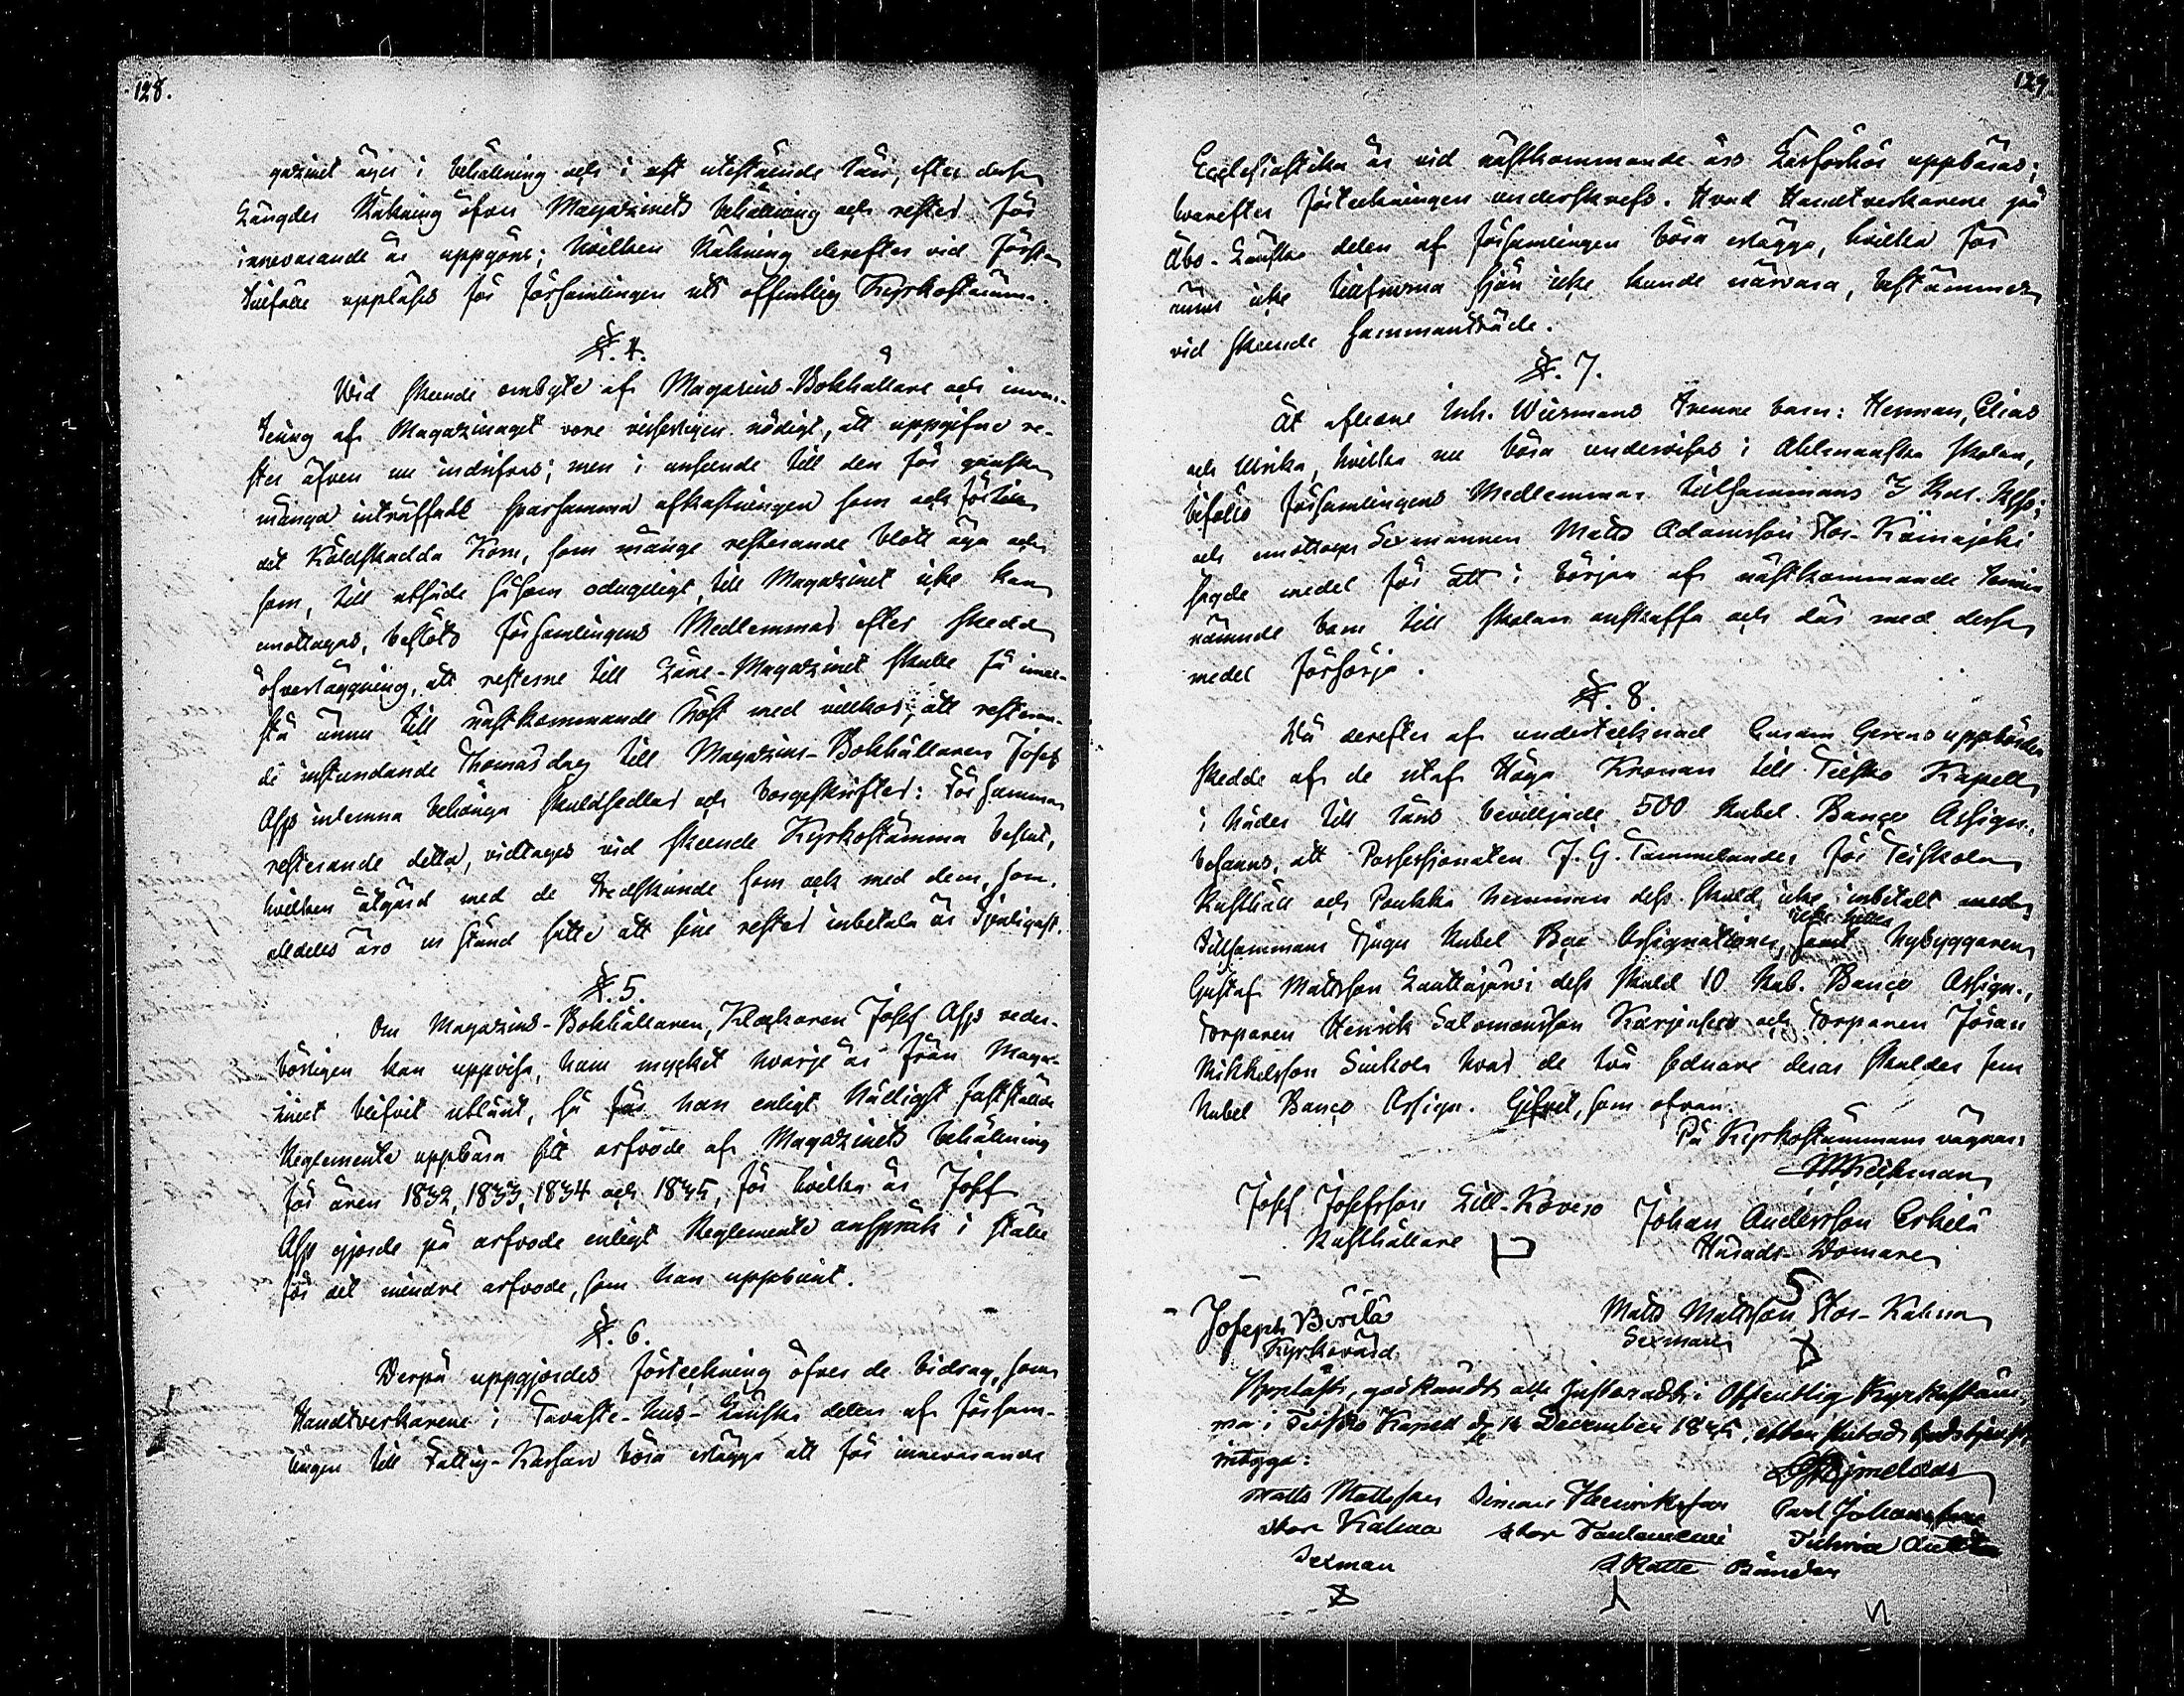 128.
gazinet äger i behållning och i ett utestående lån, efter dessa
Längder Räkning öfver Magazinets behållning och rester för
innevarande år uppgöra; hvilken Räkning derefter vid första
tillfälle uppläses för församlingen uti offentlig Kyrkostämma.
§. 4.
Wid skeende ombyte af Magasins-Bokhållare och inven-
tering af Magazinaget vore visserligen nödigt, att uppgifne re-
ster äfven nu indrifvas; men i anseende till den för ganska
många inträffade sparsamma afkastningen som och för
det Köldskadda Korn, som månge resterande blott äga och
som, till utsäde såsom odugeligt, till Magazinet icke kan
emottagas, beslöts församlingens Medlemmar efter skedd
öfverläggning, att resterne till Låne-Magazinet skulle få inne-
stå ännu till nästkommande höst med villkor, att resteran-
de instundande Thomæ dag till Magazins-Bokhållaren Josef
Asp inlemna behöriga skuldsedlar och borgeskrifter: För samma
resterande detta, vidtages vid skeende Kyrkostämma beslut,
hvilken åtgärd med de tredskande som och med dem, som
alldeles äro ur stånd satte att sine rester inbetala är tjenligast.
§. 5.
Om Magazins-Bokhållaren, Klockaren Josef Asp veder-
börligen kan uppvisa, huru mycket hvarje år från Maga-
zinet blifvit utlånt, så får han enligt Nådigst fastställde
Reglemente uppbära sitt arfvode af Magazinets behållning
för åren 1832, 1833, 1834 och 1835, för hvilka år Josef
Asp gjorde på arfvode enligt Reglemente anspråk i stället
för det mindre arfvode, som han uppburit.
§. 6.
Derpå uppgjordes förteckning öfver de bidrag, som
Handtverkarene i Tavaste-hus-Länska delen af försam-
lingen till Fattig-Kassan böra erlägga att för innevarande
129.
Ecclesiastika år vid nästkommande års Läsförhör uppbäras;
hvarefter förteckningen underskrefs. Hvad Handtverkarene på
Åbo-Länska delen af församlingen böra erlägga, hvilka för
ännu icke tillfrusna sjön icke kunde närvara, bestämmes
vid skeende sammanträde.
§. 7.
Åt aflidne Inh. Wiermans trenne barn: Herman, Elias
och Ulrika, hvilka nu böra undervisas i Ahlmanska skolan,
beföllo församlingens Medlemmar tillsammans 7 Rub. Assi;
och emottager Sexmannen Matts Adamsson Stor-Kämäjoki
sagde medel för att i början af nästkommande termin
nämnde barn till skolan anskaffa och där med dessa
medel försörja.
§. 8.
Då derefter af undertecknad genom Gerens uppbörden
skedde af de utaf Höga Kronan till Teisko Kapell
i Nåder till låns beviljade 500 Rubel Banco Assign.,
befanns, att Possessionaten J. G. Tammelander för Teiskola
Rusthåll och Paukka hemman dess skuld icke inbetalt med
tillsammans tjugu Rubel Bco Assignationer, icke heller Nybyggaren
Gustaf Mattsson Lauttajärvi dess skuld 10 Rub. Banco Assign.,
Torparen Henrik Salomonsson Karjensivu och Torparen Jöran
Mikkelsson Sinkola hvar de två sednare deras skulder fem
Rubel Banco Assign. Gifvet, som ofvan.
På Kyrkostämmans vägnar:
Josef Josefsson Lill-Kovero
Rusthållare
Johan Andersson Erkilä
Härads-Domare
Joseph Berila
Kyrkovärd.
Matts Mattsson Stor-Kalma
Sexman
Uppläst, godkändt och justeradt i Offentlig Kyrkostäm-
ma i Teisko Kapell d. 14 December 1835, efter slutad Gudstjenst,
intyga:
Matts Mattsson
Stor Kalma
Sexman
Simon Henriksson
Stor
Carl Johansson
Skatte Bönder